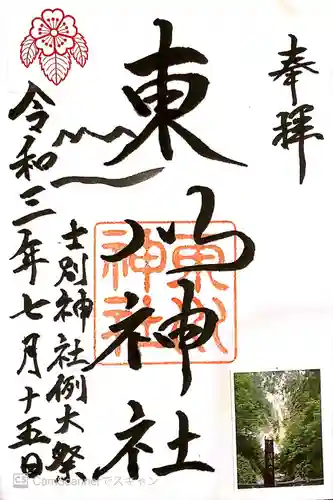 奉拝
東川神社
東川神社
士別神社例大祭
令和三年七月十五日
CS CamScannerでスキャン